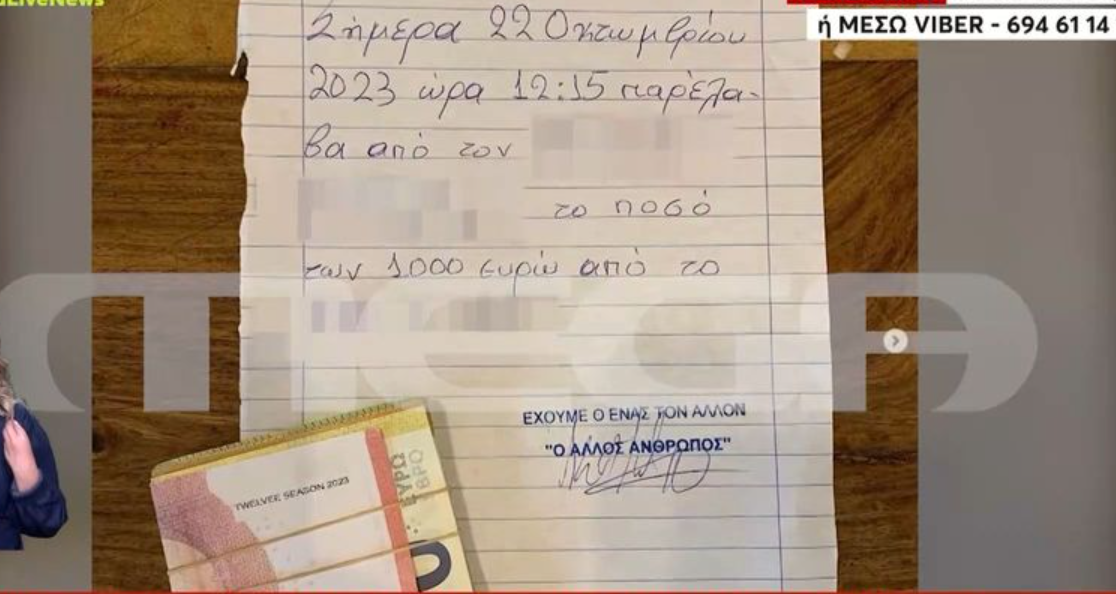 LiveNews
ή ΜΕΣΩ VIBER - 694 61 14
Σήμερα 22 Οκτωμβρίου
2023 ώρα 12:15 παρέλα-
βα από τον
το ποσό
των 1000 ευρώ από το
MEGA
ΕΧΟΥΜΕ Ο ΕΝΑΣ ΤΟΝ ΑΛΛΟΝ
"Ο ΑΛΛΟΣ ΑΝΘΡΩΠΟΣ"
TWELVEE SEASON 2023
ΕΥΡΩ